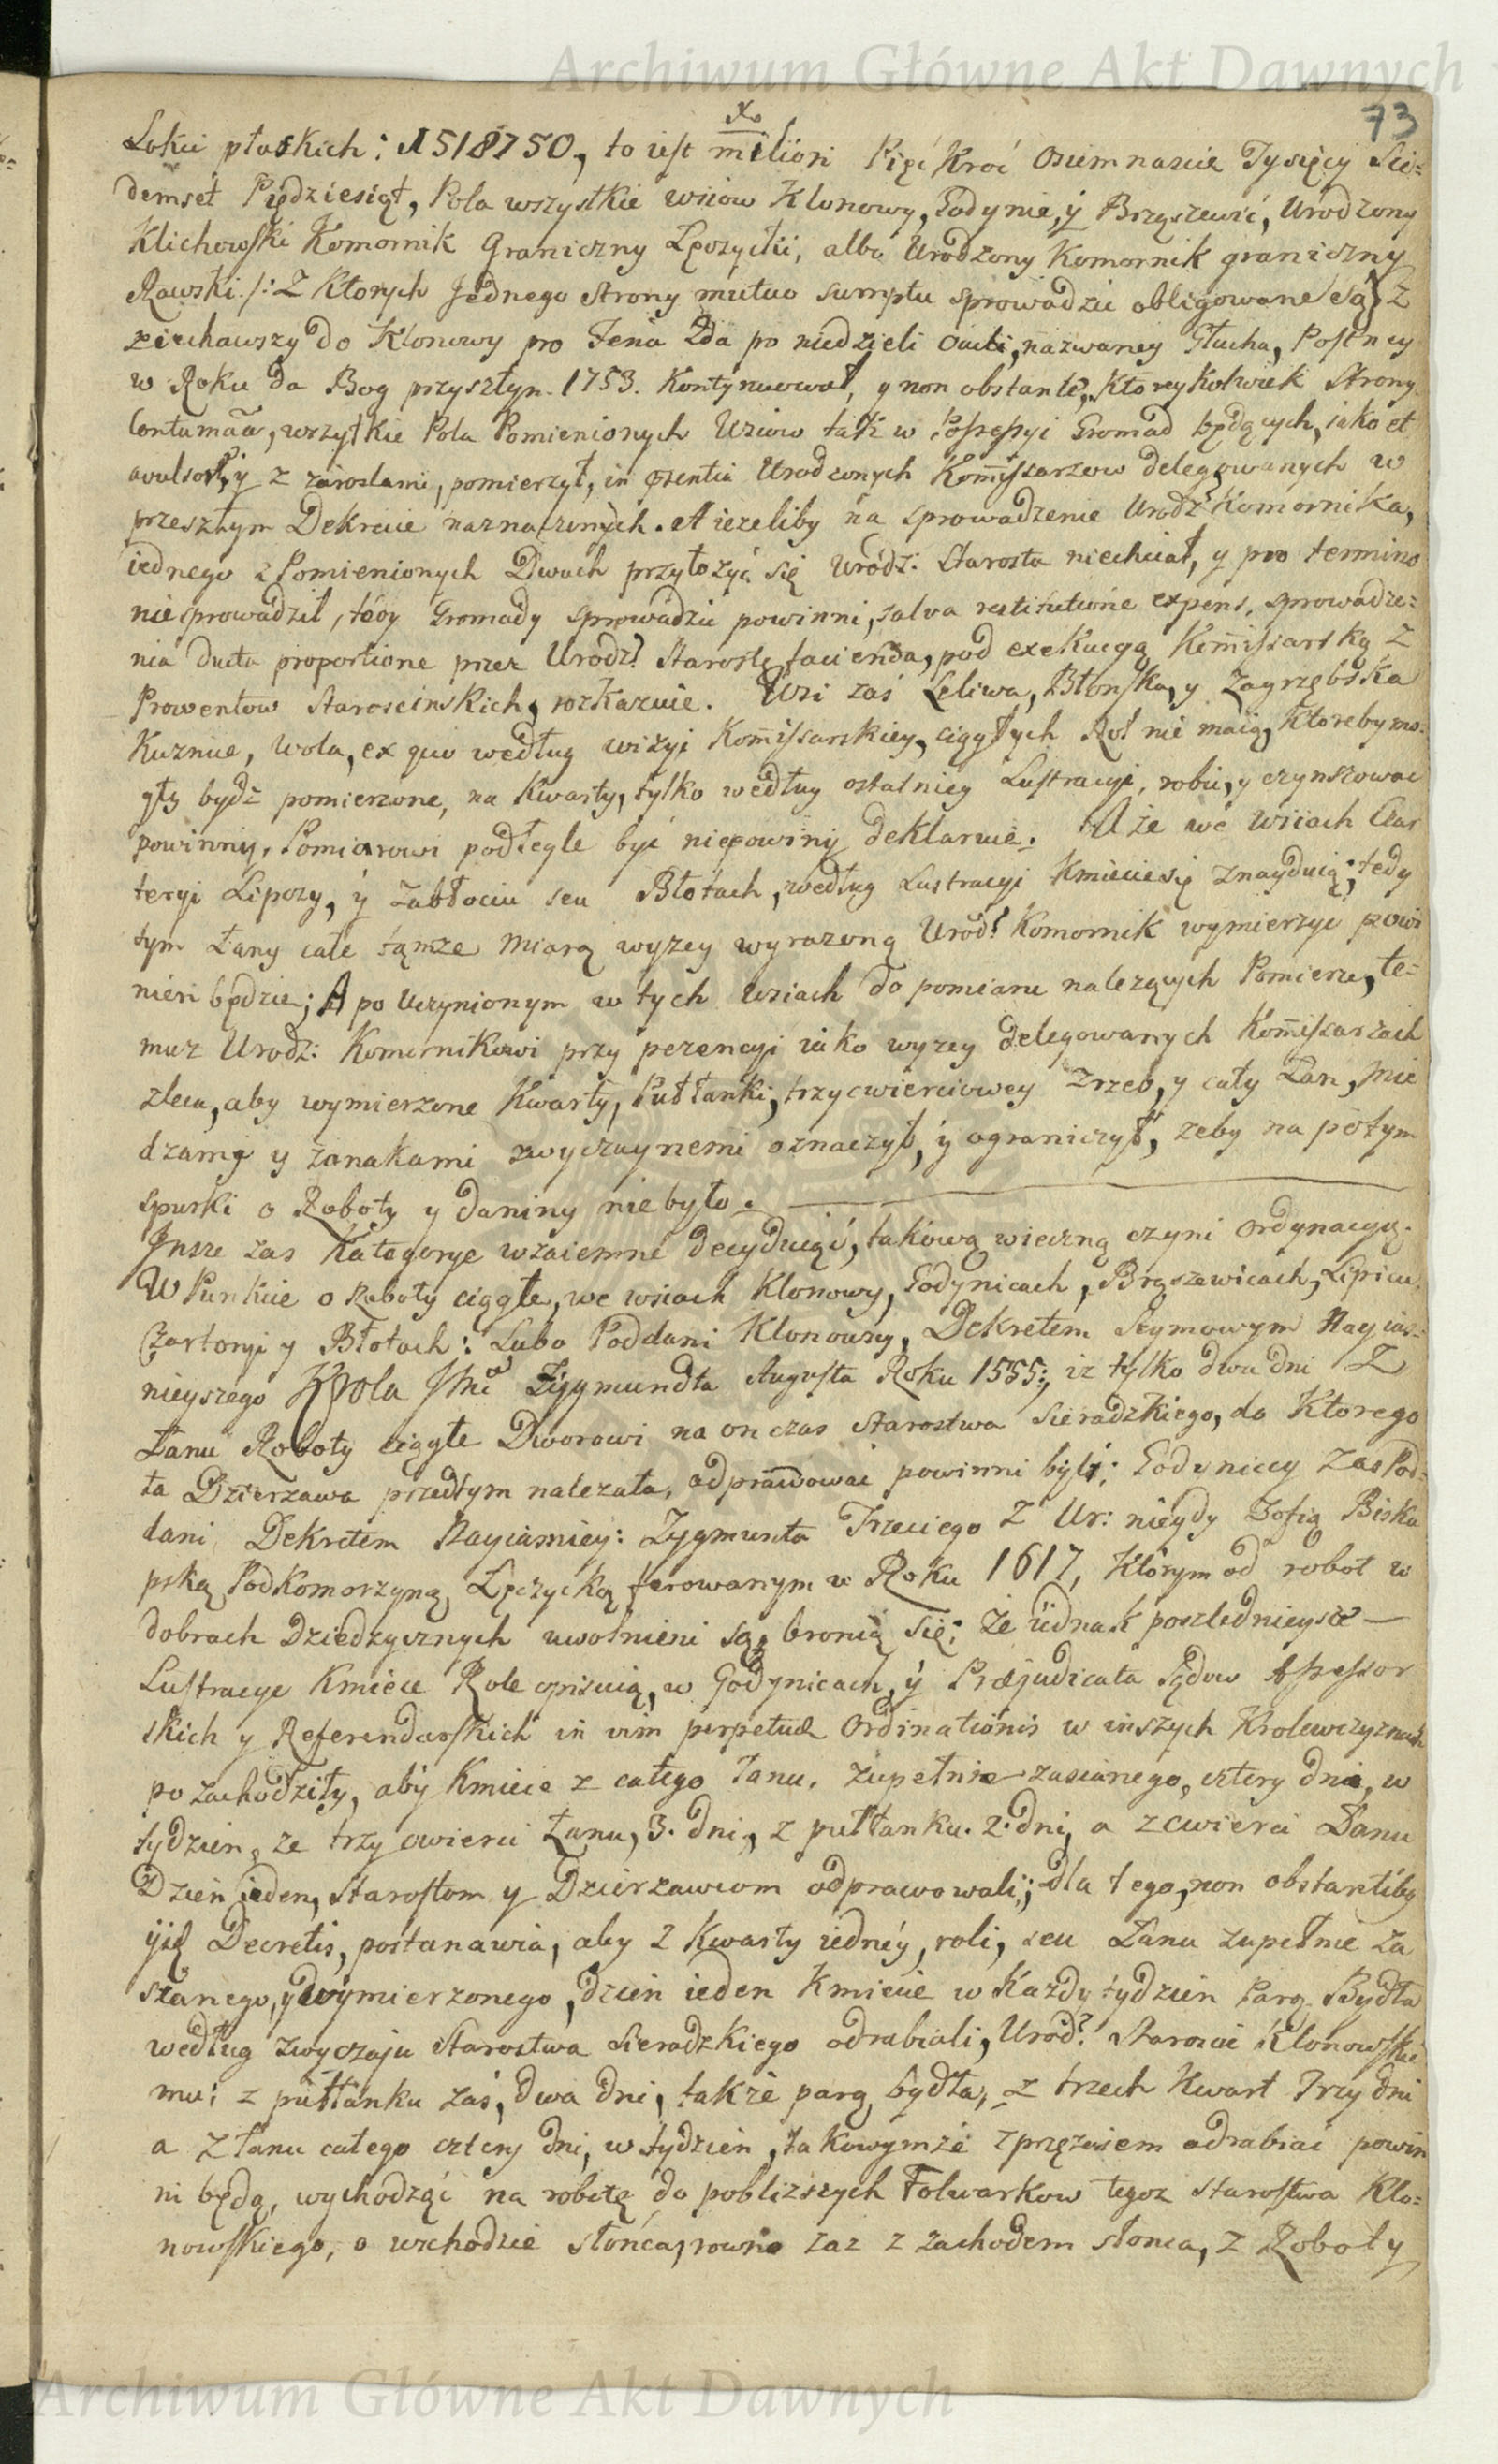 Archiwum Główne Akt Dawnych
73
Lokci płaskich: 1518750, to iest million Pięć Kroć Osiemnascie Tysięcy Sie=
demset Pięćdziesiąt, Pola wszystkie wsiow Klonowy, Godynic, y Brząszewic, Urodzony
Klichowski Komornik Graniczny Łęczycki, albo Urodzony Komornik graniczny
Rawski /: Z Ktorych Jednego Strony mutuo sumptu sprowadzic obligowane są) Z
ziechawszy do Klonowy pro Feria 2da po niedzieli Oculi, nazwaney Głucha, Postney
w Roku da Bog przyszłym 1753. Kontynuował, y non obstante, Ktoreykolwiek Strony
Contumacia, wszytkie Pola Pomienionych Wsiow tak w Possessyi Gromad będących, iako et
avulsory, y z zaroslami, pomierzył, in psentia Urodzonych Kommissarzow delegowanych w
przeszłym Dekrecie naznaczonych. A iezeliby na sprowadzenie Urodz: Komornika,
iednego z Pomienionych Dwoch przyłozyć się Urodz: Starosta niechciał, y pro termino
nie sprowadził, tedy Gromady sprowadzic powinni, salva restitutione expens, sprowadze=
nia ducta proportione przez Urodz: Starostę facienda, pod exekucyą Kommissarską z
Prowentow Staroscinskich, rozkazuie. Wsi zaś Leliwa, Błonska, y Zagrzebska
Kuznice, Wola, ex quo według wizyi Kommissarskiey, ciągłych Rol nie maią, Ktoreby mo=
gły bydź pomierzone, na Kwarty, tylko według ostatniey Lustracyi, robic, y czynszowac
powinny, Pomiarowi podległe być niepowinny deklaruie. A że we Wsiach Czar
toryi Lipczy, y Zabłociu seu Błotach, według Lustracyi Kmiecie się znayduią; tedy
tym Łany całe tąmze miarą wyzey wyrazoną Urodz: Komornik wymierzyc powi
nien będzie; A po Uczynionym w tych wsiach do pomiaru nalezących Pomierze, te=
muz Urodz: Komornikowi przy pezencyi iako wyzey delegowanych Kommissarzach
zleca, aby wymierzone Kwarty, Pułłanki, trzycwierciowey zrzeb, y cały Łan, mie
dzami y znakami zwyczaynemi oznaczył, y ograniczył, zeby na potym
spurki o Roboty y daniny niebyło.
Insze zas Kategorye wzaiemne decyduiąć, takową wieczną czyni Ordynacyą.
W Punkcie o Roboty ciągłe, we wsiach Klonowy, Godynicach, Brąszewicach, Lipicu,
Czartoryi y Błotach: Lubo Poddani Klonowscy, Dekretem Seymowym Nayias=
nieyszego Krola Jmci Zygmundta Augusta Roku 1555: iz tylko dwa dni Z
Łanu Roboty ciągłe Dworowi na on czas Starostwa Sieradzkiego, do Ktorego
ta Dzierzawa przedtym nalezała, odprawowac powinni byli; Godyniccy zas Pod=
dani Dekretem Nayiasniey: Zygmunta Trzeciego z Ur: niegdy Zofią Bisku
pską Podkomorzyną Łęczycką ferowanym w Roku 1617, Ktorym od robot w
dobrach Dziedzycznych uwolnieni są, bronią się; Że iednak poszlednieysze
Lustracye Kmiece Role opisuią, w Godynicach, y Præjudicata Sądow Assessor
skich y Referendarskich in vim perpetuæ Ordinationis w inszych Krolewczyznach
po zachodziły, aby Kmiecie z całego łanu, zupełnie zasianego, cztery dni, w
tydzien, ze trzy cwierci Łanu, 3. dni, z pułłanku. 2. dni, a z cwierci Łanu
Dzień ieden, Starostom y Dzierzawcom odprawowali; dla tego, non obstantibg
ijsq Decretis, postanawia, aby z Kwarty iedney, roli, seu Łanu zupełnie za
sianego, y wymierzonego, dzien ieden Kmiecie w Kazdy tydzien Parą Bydła
według Zwyczaju Starostwa Sieradzkiego odrabiali, Urodz: Staroscie Klonowskie
mu; z pułłanku zaś, dwa dni, także parą bydła, z trzech Kwart Trzy dni
a z łanu całego cztery dni, w tydzien, takowymże zprzęzaiem odrabiac powin
ni będą, wychodząć na robotę do poblizszych Folwarkow tegoz Starostwa Klo=
nowskiego, o wschodzie słońca, rowno zaz z zachodem słonca, z Roboty
Archiwum Główne Akt Dawnych